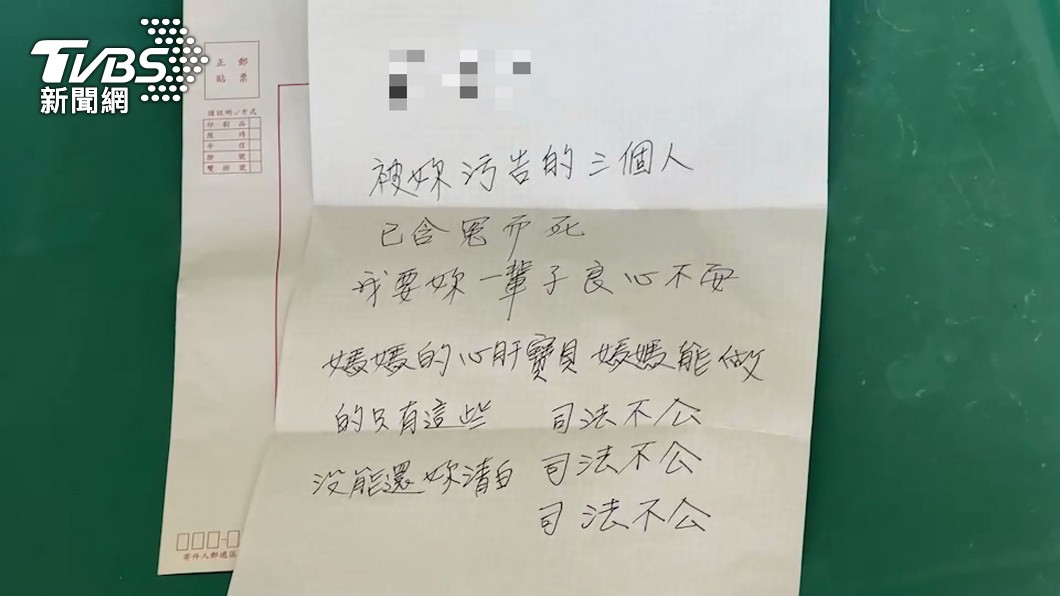 TVBS
新聞網
正貼
郵票
請註明✓方式
印刷品
限時
平信
掛號
雙掛號
被妳污告的三個人
已含冤而死
我要妳一輩子良心不安
媽媽的心肝寶貝 媽媽能做
的只有這些 司法不公
没能還妳清白 司法不公
司法不公
寄件人郵遞區